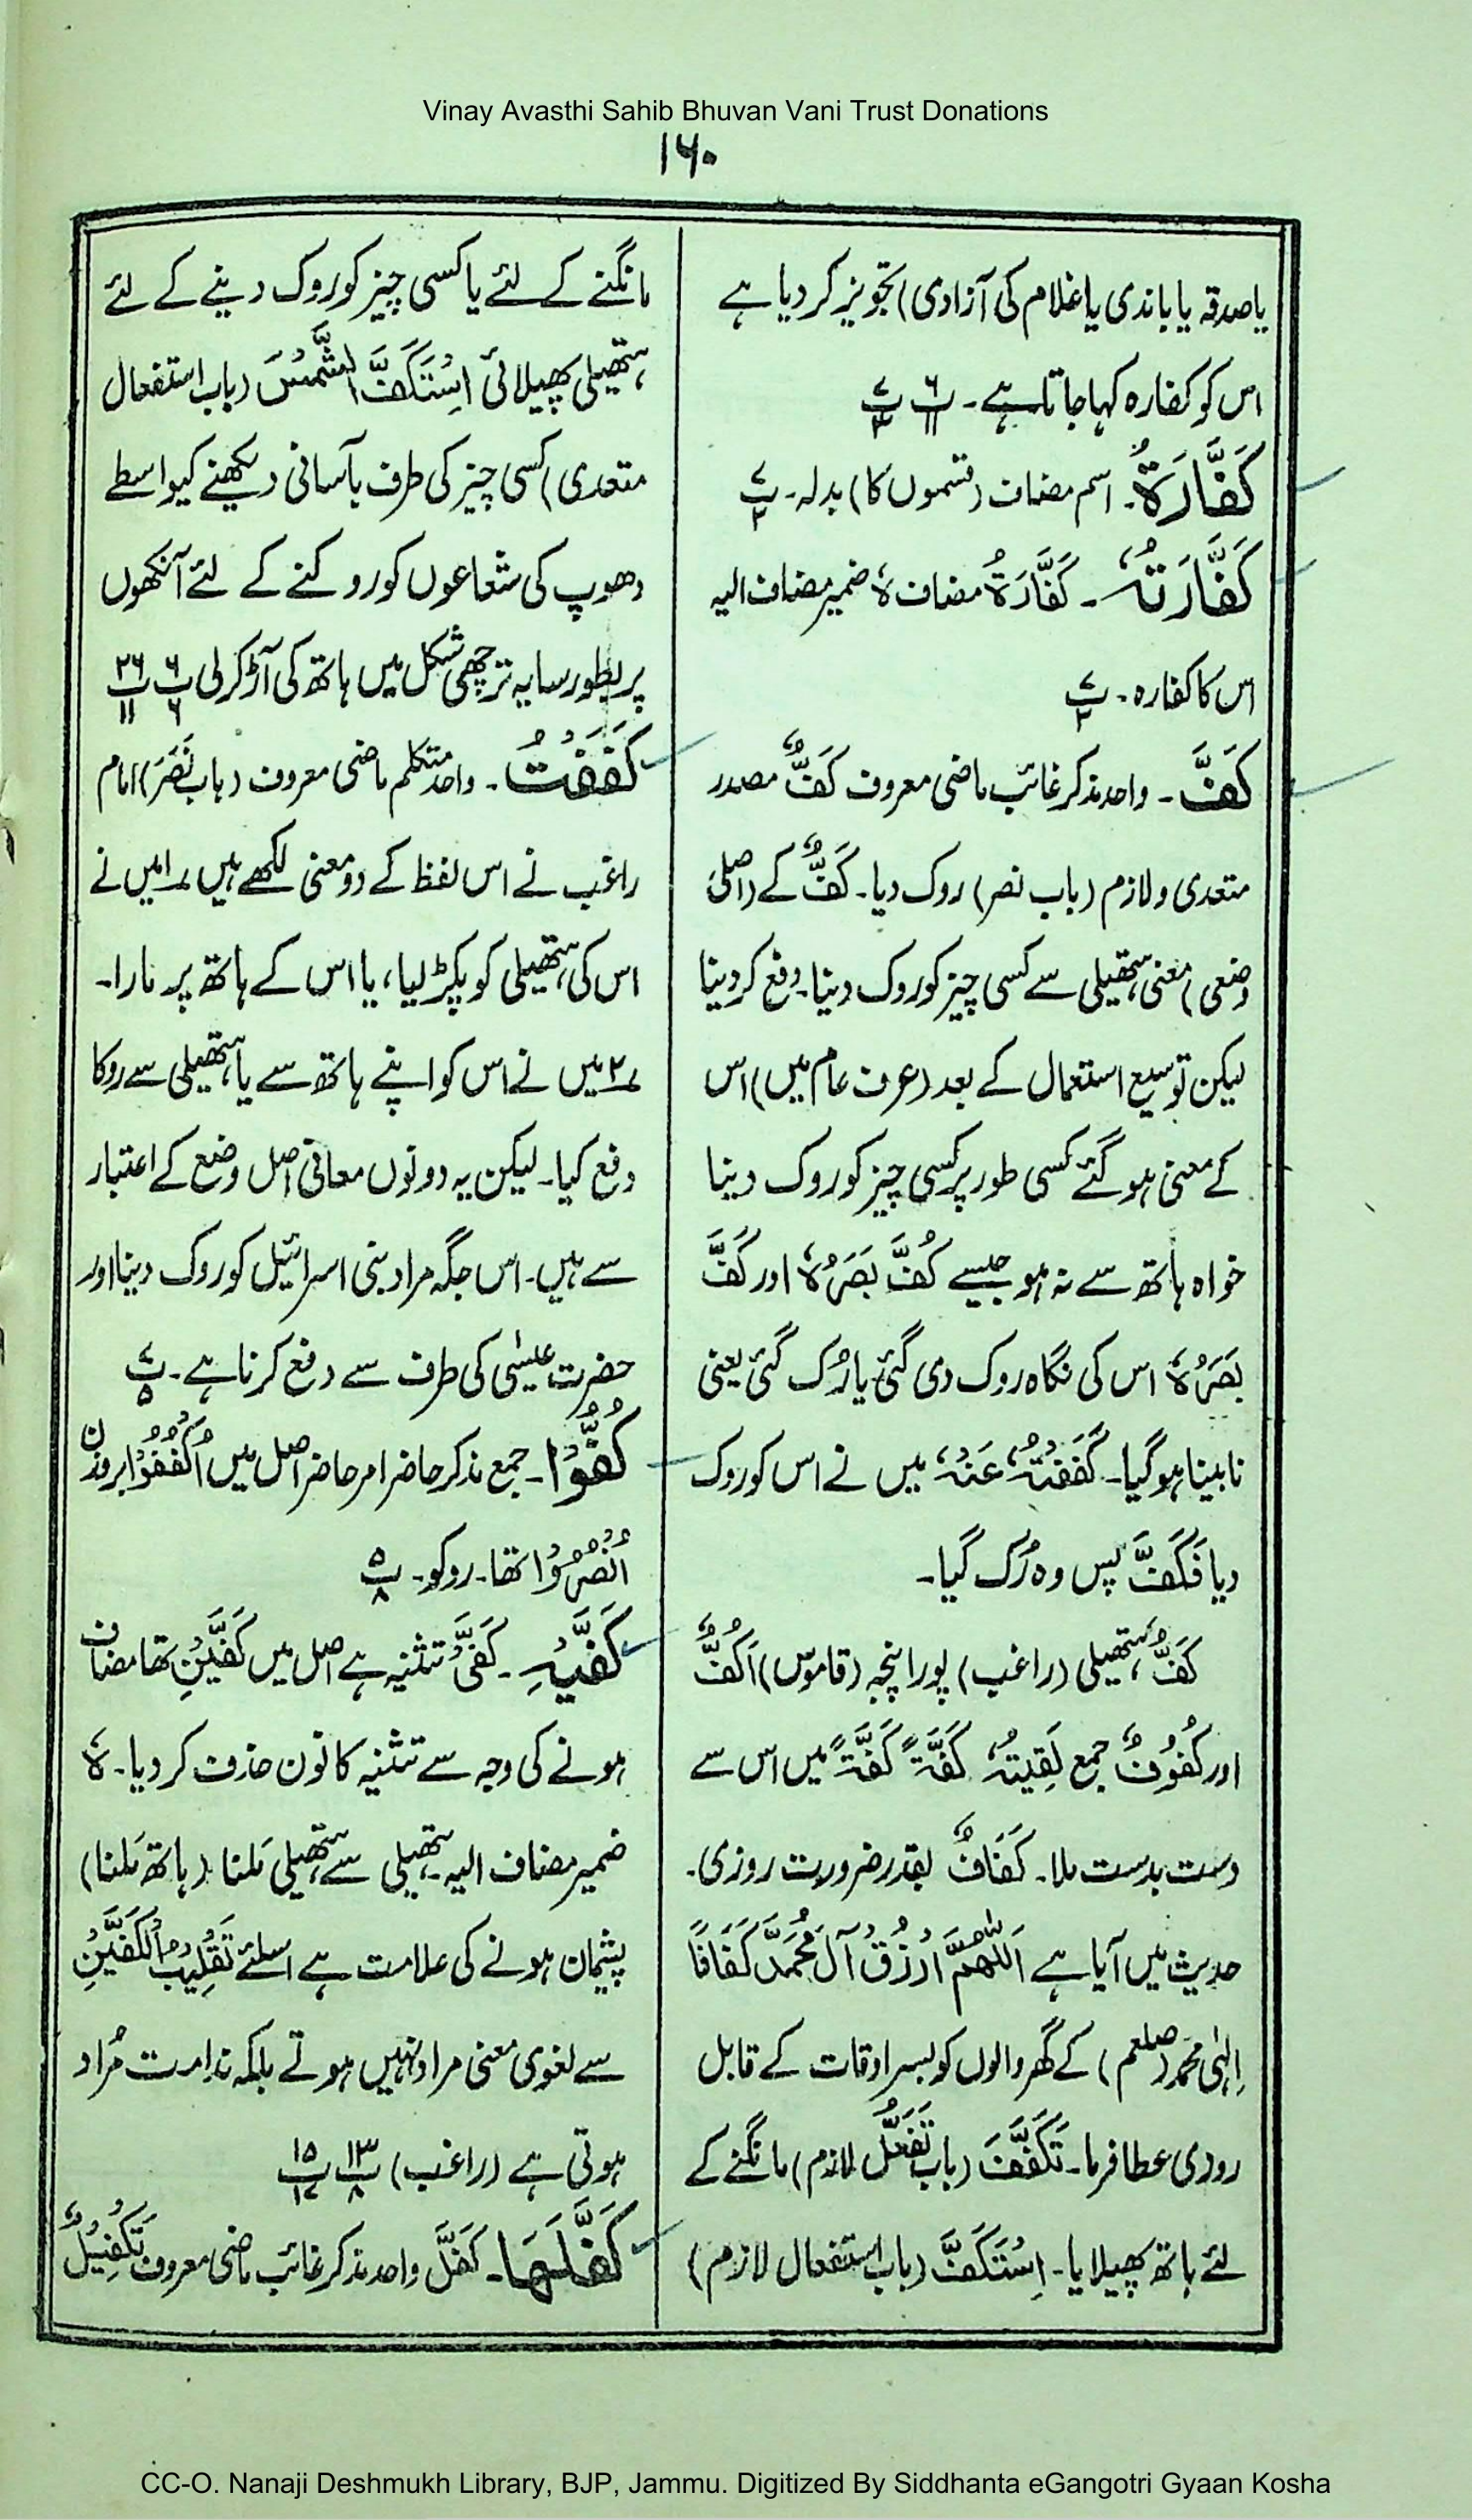 Vinay Avasthi Sahib Bhuvan Vani Trust Donations
۱۶۰
یا صدقہ یا باندی یا غلام کی آزادی) تجویز کر دیا ہے
اس کو کفارہ کہا جاتا ہے۔ پ ۶/۱۱ پ ۷/۳
کَفَّارَۃُ۔ اسم مضاف (قسموں کا) بدلہ۔ پ ۷/۲
کَفَّارَتُہٗ۔ کَفَّارَۃُ مضاف ہٗ ضمیر مضاف الیہ
اس کا کفارہ۔ پ ۷/۲
کَفَّ۔ واحد مذکر غائب ماضی معروف کَفٌّ مصدر
متعدی و لازم (باب نصر) روک دیا۔ کَفٌّ کے (اصلی
وضعی) معنی ہتھیلی سے کسی چیز کو روک دینا۔ دفع کر دینا
لیکن توسیع استعمال کے بعد (عرف عام میں) اس
کے معنی ہو گئے کسی طور پر کسی چیز کو روک دینا
خواہ ہاتھ سے نہ ہو جیسے کُفَّ بَصَرُہٗ اور کَفَّ
بَصَرُہٗ اس کی نگاہ روک دی گئی یا رُک گئی یعنی
نابینا ہو گیا۔ کَفَفْتُہٗ عَنْہُ میں نے اس کو روک
دیا فَکَفَّ پس وہ رُک گیا۔
کَفٌّ ہتھیلی (راغب) پورا پنجہ (قاموس) اَکُفٌّ
اور کُفُوْفٌ جمع لَقِیتُہٗ کَفَّۃً کَفَّۃً میں اس سے
دست بدست ملا۔ کَفَافٌ بقدر ضرورت روزی۔
حدیث میں آیا ہے اَللّٰھُمَّ ارْزُقْ آلَ مُحَمَّدٍ کَفَافًا
اِلٰہی محمد (صلعم) کے گھر والوں کو بسر اوقات کے قابل
روزی عطا فرما۔ تَکَفَّفَ (باب تَفَعُّل لازم) مانگنے کے
لئے ہاتھ پھیلایا۔ اِسْتَکَفَّ (باب استفعال لازم)
مانگنے کے لئے یا کسی چیز کو روک دینے کے لئے
ہتھیلی پھیلائی اِسْتَکَفَّ الشَّمْسَ (باب استفعال
متعدی) کسی چیز کی طرف بآسانی دیکھنے کیواسطے
دھوپ کی شعاعوں کو روکنے کے لئے آنکھوں
پر بطور سایہ ترچھی شکل میں ہاتھ کی آڑ کر لی پ ۶/۶ پ ۲۶/۱۱
کَفَفْتُ۔ واحد متکلم ماضی معروف (باب نَصَرَ) امام
راغب نے اس لفظ کے دو معنی لکھے ہیں ۱؎ میں نے
اس کی ہتھیلی کو پکڑ لیا، یا اس کے ہاتھ پر مارا۔
۲؎ میں نے اس کو اپنے ہاتھ سے یا ہتھیلی سے روکا
دفع کیا۔ لیکن یہ دونوں معانی اصل وضع کے اعتبار
سے ہیں۔ اس جگہ مراد بنی اسرائیل کو روک دینا اور
حضرت عیسٰی کی طرف سے دفع کرنا ہے۔ پ ۷/۵
کُفُّوْا۔ جمع مذکر حاضر امر حاضر اصل میں اُکْفُفُوْا بروزن
اُنْصُرُوْا تھا۔ روکو۔ پ ۵/۸
کَفَّیْہِ۔ کَفَّیْ تثنیہ ہے اصل میں کَفَّیْنِ تھا مضاف
ہونے کی وجہ سے تثنیہ کا نون حذف کر دیا۔ ہٗ
ضمیر مضاف الیہ۔ ہتھیلی سے ہتھیلی مَلنا (ہاتھ مَلنا)
پشیمان ہونے کی علامت ہے اسلئے تَقْلِیْبُ الْکَفَّیْنِ
سے لغوی معنی مراد نہیں ہوتے بلکہ ندامت مُراد
ہوتی ہے (راغب) پ ۱۳/۸ پ ۱۵/۱۷
کَفَّلَھَا۔ کَفَّلَ واحد مذکر غائب ماضی معروف تَکْفِیْلٌ
CC-O. Nanaji Deshmukh Library, BJP, Jammu. Digitized By Siddhanta eGangotri Gyaan Kosha